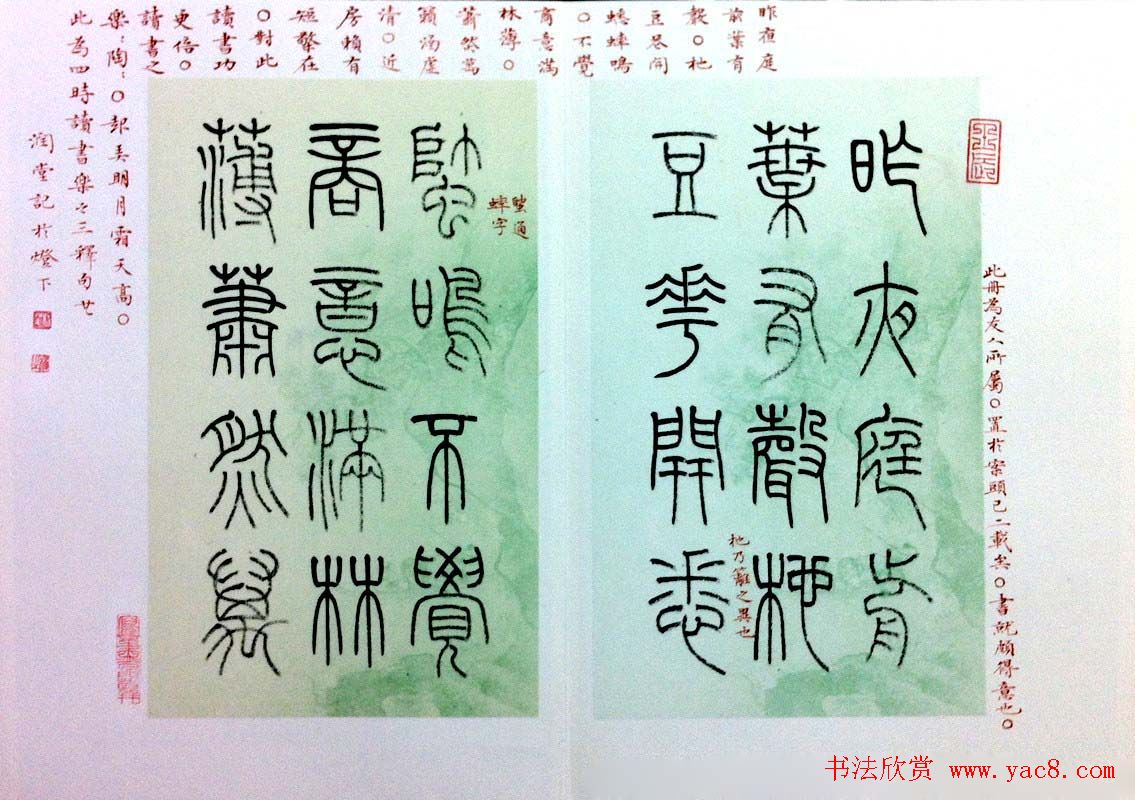 昨夜庭前
葉有聲杝
豆華開悉
䘍鳴不覺
商意滿林
薄蕭然萬
此冊為友人所屬○置於案頭已二載矣○書就頗得意也○
杝乃籬之異也
䘍通
蟀字
昨夜庭
前葉有
聲○杝
豆花開
蟋蟀鳴
○不覺
商意滿
林薄○
蕭然萬
籟涵虛
清○近
房賴有
短檠在
○對此
讀書功
更倍○
讀書之
樂：陶：○起弄明月霜天高○
此為四時讀書樂之三釋句
潤堂記於燈下
书法欣赏 www.yac8.com